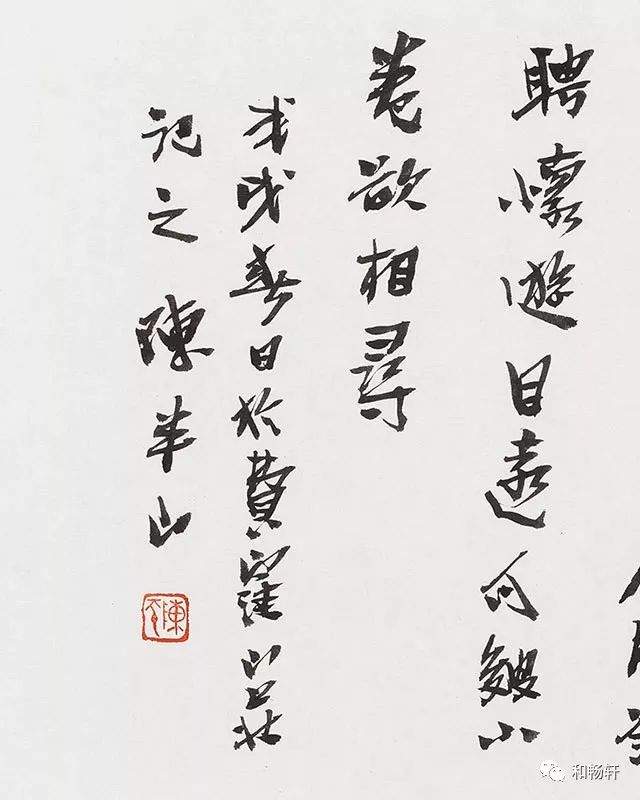 聘懷遊目遠何皴小
卷欲相尋
戊戌春日於費窪山莊
記之 陳半山
陳
和畅轩